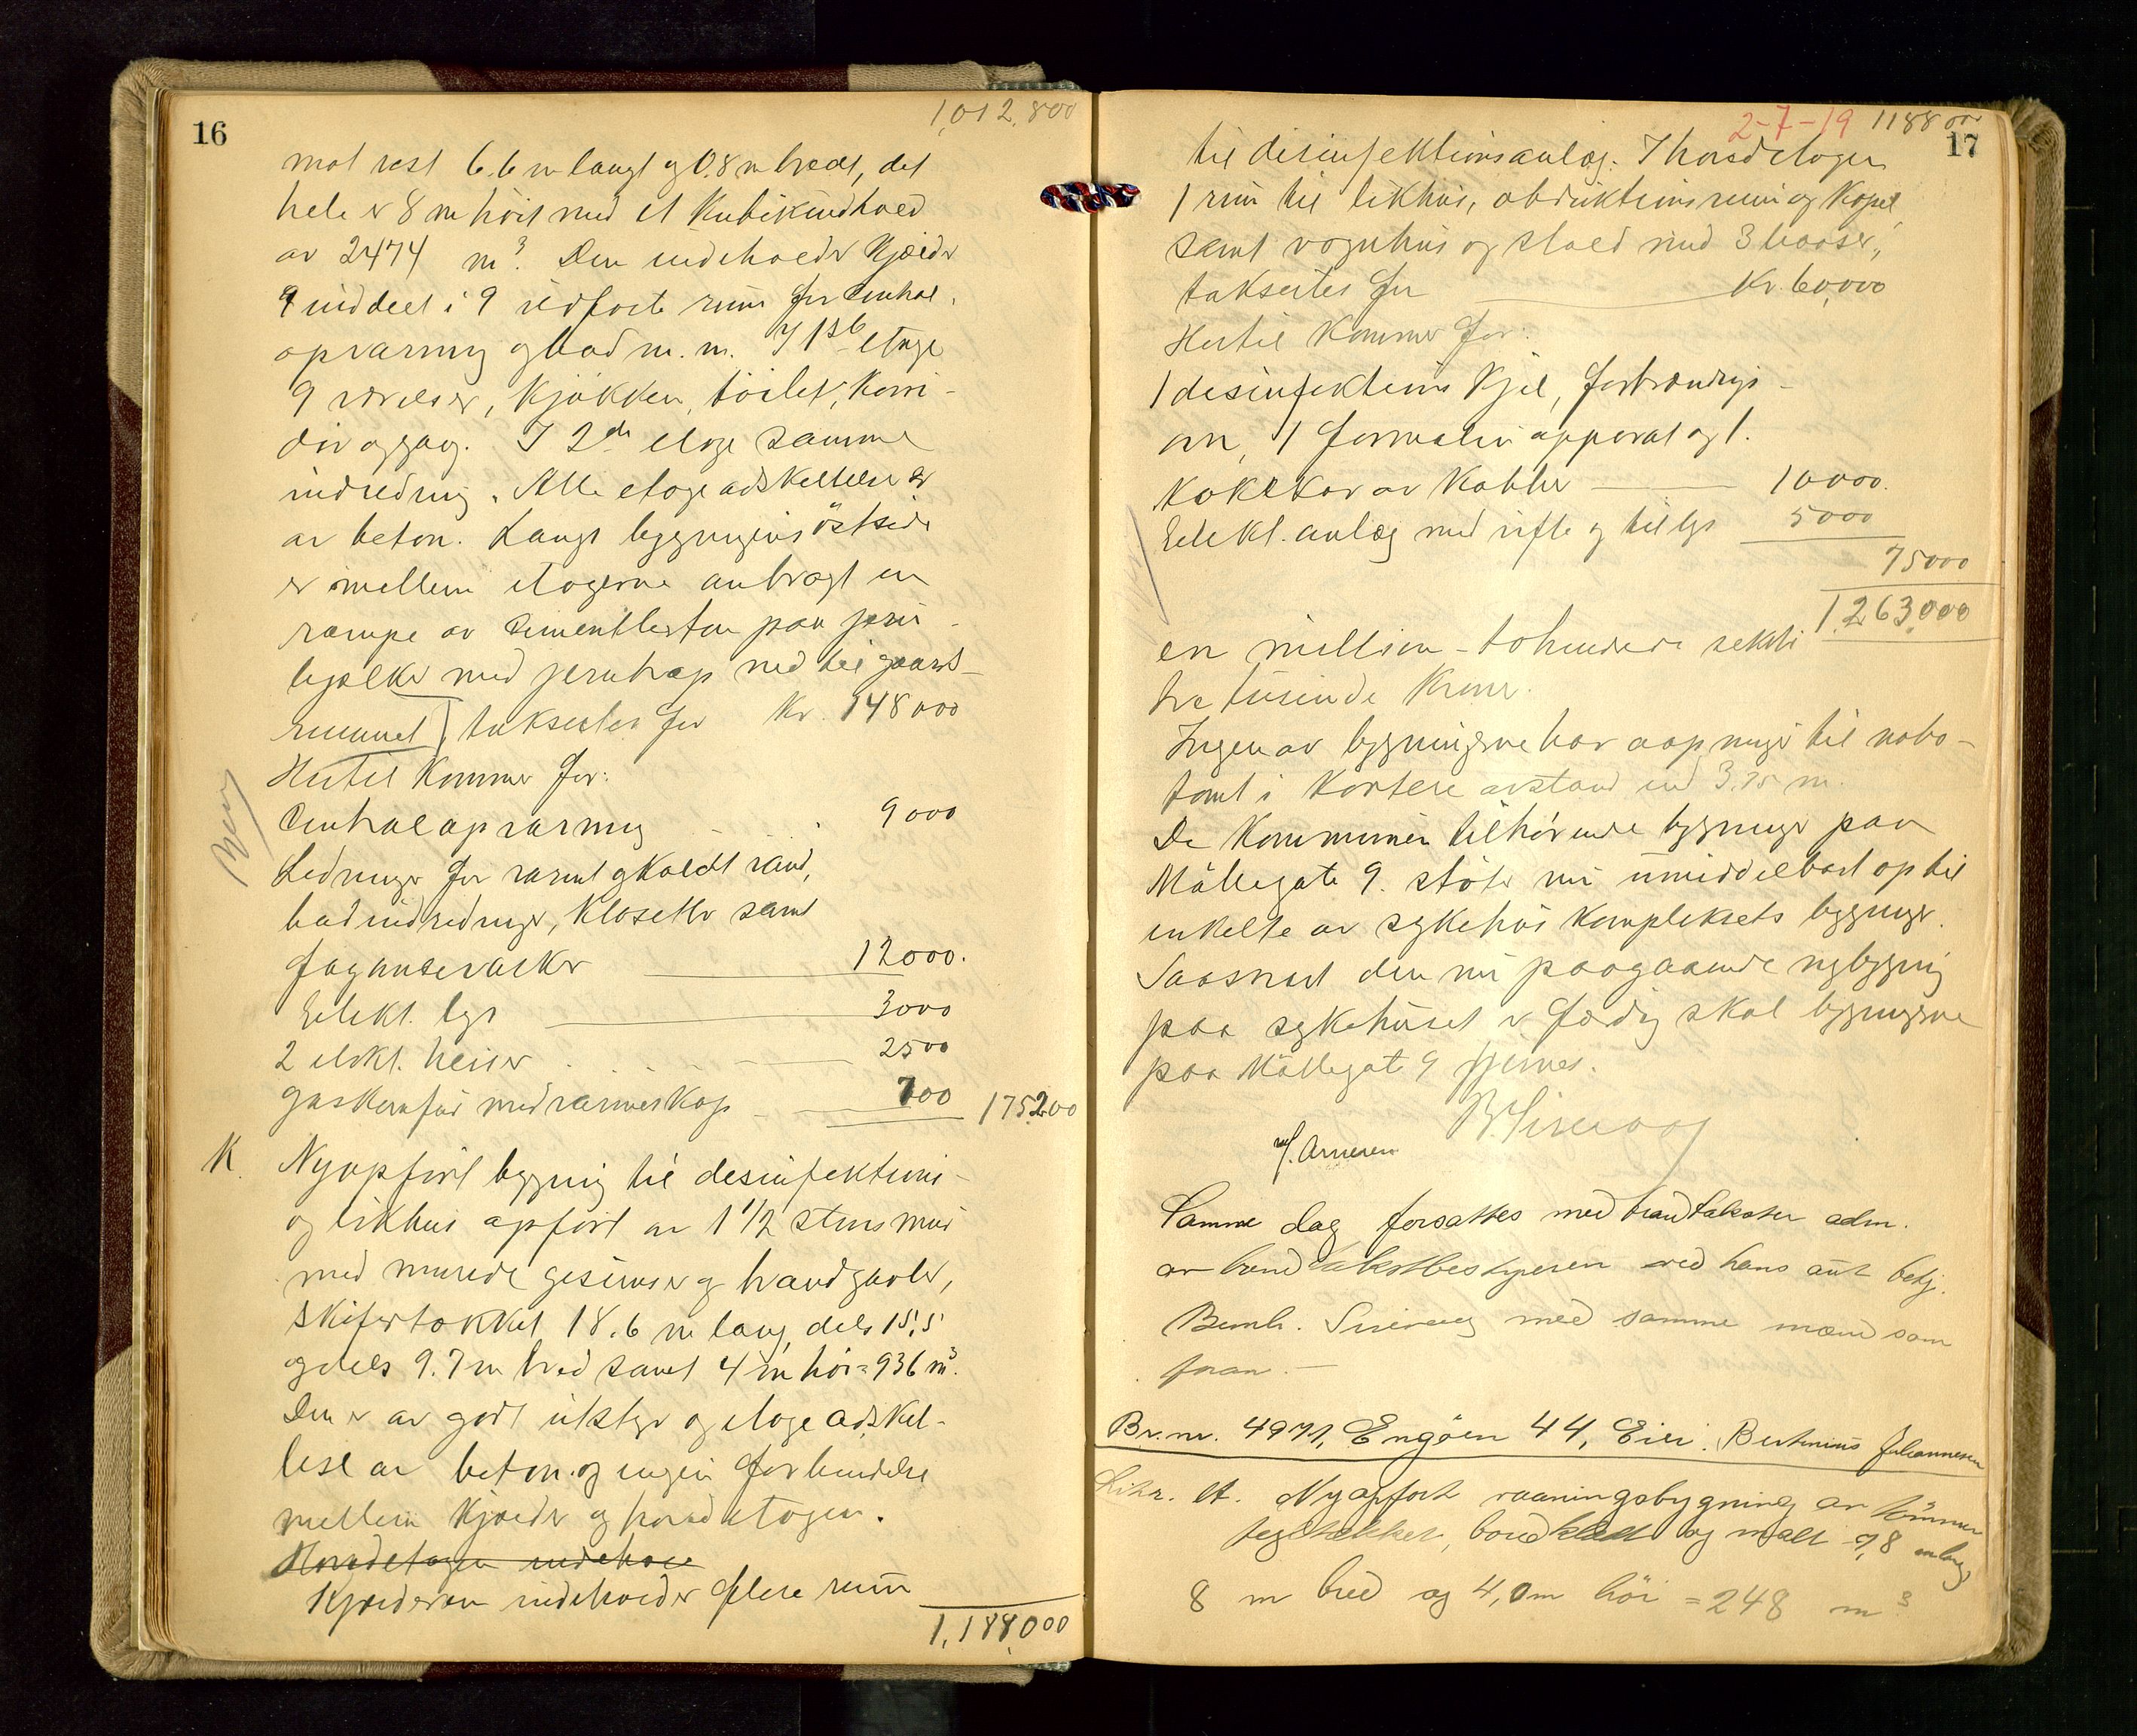 16
1,012,800
mot vest 6.6 m langt og 0.8 m bredt, det
hele er 8 m höit med et Kubikindhold
av 2474 m³. Den indeholder Kjelder
inddelt i 9 utforte rum for Central
opvarmig og bad m. m. I 1ste etage
9 værelser, Kjökken, toilet, Korri-
dor og gang. I 2de etage samme
indredning. Alle etageadskillelser er
av beton. Langs bygningens östside
er mellem etagerne anbragt en
rampe av Cementbeton paa jern-
bjælker med jerntrap ned til gaards-
rummet, taksertes for Kr. 148000
Hertil Kommer for:
Centralopvarming 9000
Ledninger for varmt og Koldt vand,
badindredninger, Klosetter samt
fayancevasker 12000.
Elekt. lys 3000
2 elekt. heiser 2500
Gaskomfur med varmeskap 700 175,200
K. Nyopfört bygning til desinfektions-
og likhus opfört av 1 1/2 stens mur
med murede gesimser og brandgavler,
Skifertækket 18.6 m lang, dels 15.5
og dels 9.7 m bred samt 4 m höi = 936 m³.
Den er av godt utstyr og etage adskil-
lese av beton og ingen forbindelse
mellem Kjelder og hovedetagen.
Hovedetagen indehol
Kjelderen indeholder flere rum
1,188,000
2-7-19 1188000
17
til desinfektionsanlæg. I hovedetagen
1 rum til likhus, obduktionsrum og Kapel
samt vognhus og stald med 3 baaser,
taksertes for Kr. 60,000
Hertil Kommer for:
1 desinfektions Kjel, forbrændings-
ovn, 1 formalin apparat og 1
KokeKar av Kobber 10000.
Elekt. anlæg med vifte og til lys 5000
75000
1,263,000
en million - tohundrede seksti
tre tusinde Kroner.
Ingen av bygningerne har aapninger til nabo-
tomt i Kortere avstand end 3.75 m.
De Kommunen tilhörende bygninger paa
Möllegate 9. stöter nu umiddelbart op til
enkelte av sykehus Kompleksets bygninger.
Saasnart den nu paagaaende nybygning
paa sykehuset er færdig skal bygningerne
paa Möllegate 9 fjernes.
Arnesen
Samme dag forsattes med brandtakster adm.
av brandtakstbestyreren ved hans aut betj.
med samme mænd som
foran. -
Br. nr. 4971, Engöen 44, Eier. Bertinius Johannesen
Litr. A. Nyopfört vaaningsbygning av tömmer
tegltækket, bordklædt og malt 7,8 m lang
8 m bred og 4,0 m höi = 248 m³